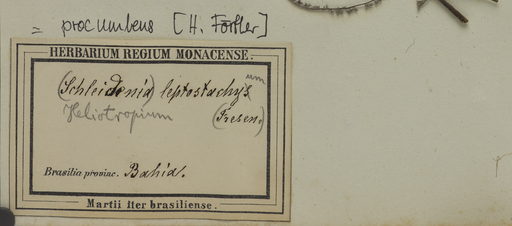 = procumbens [H. Förther]
HERBARIUM REGIUM MONACENSE.
(Schleidenia) leptostachys um
Heliotropium (Fresen.)
Brasilia provinc. Bahia.
Martii Iter brasiliense.